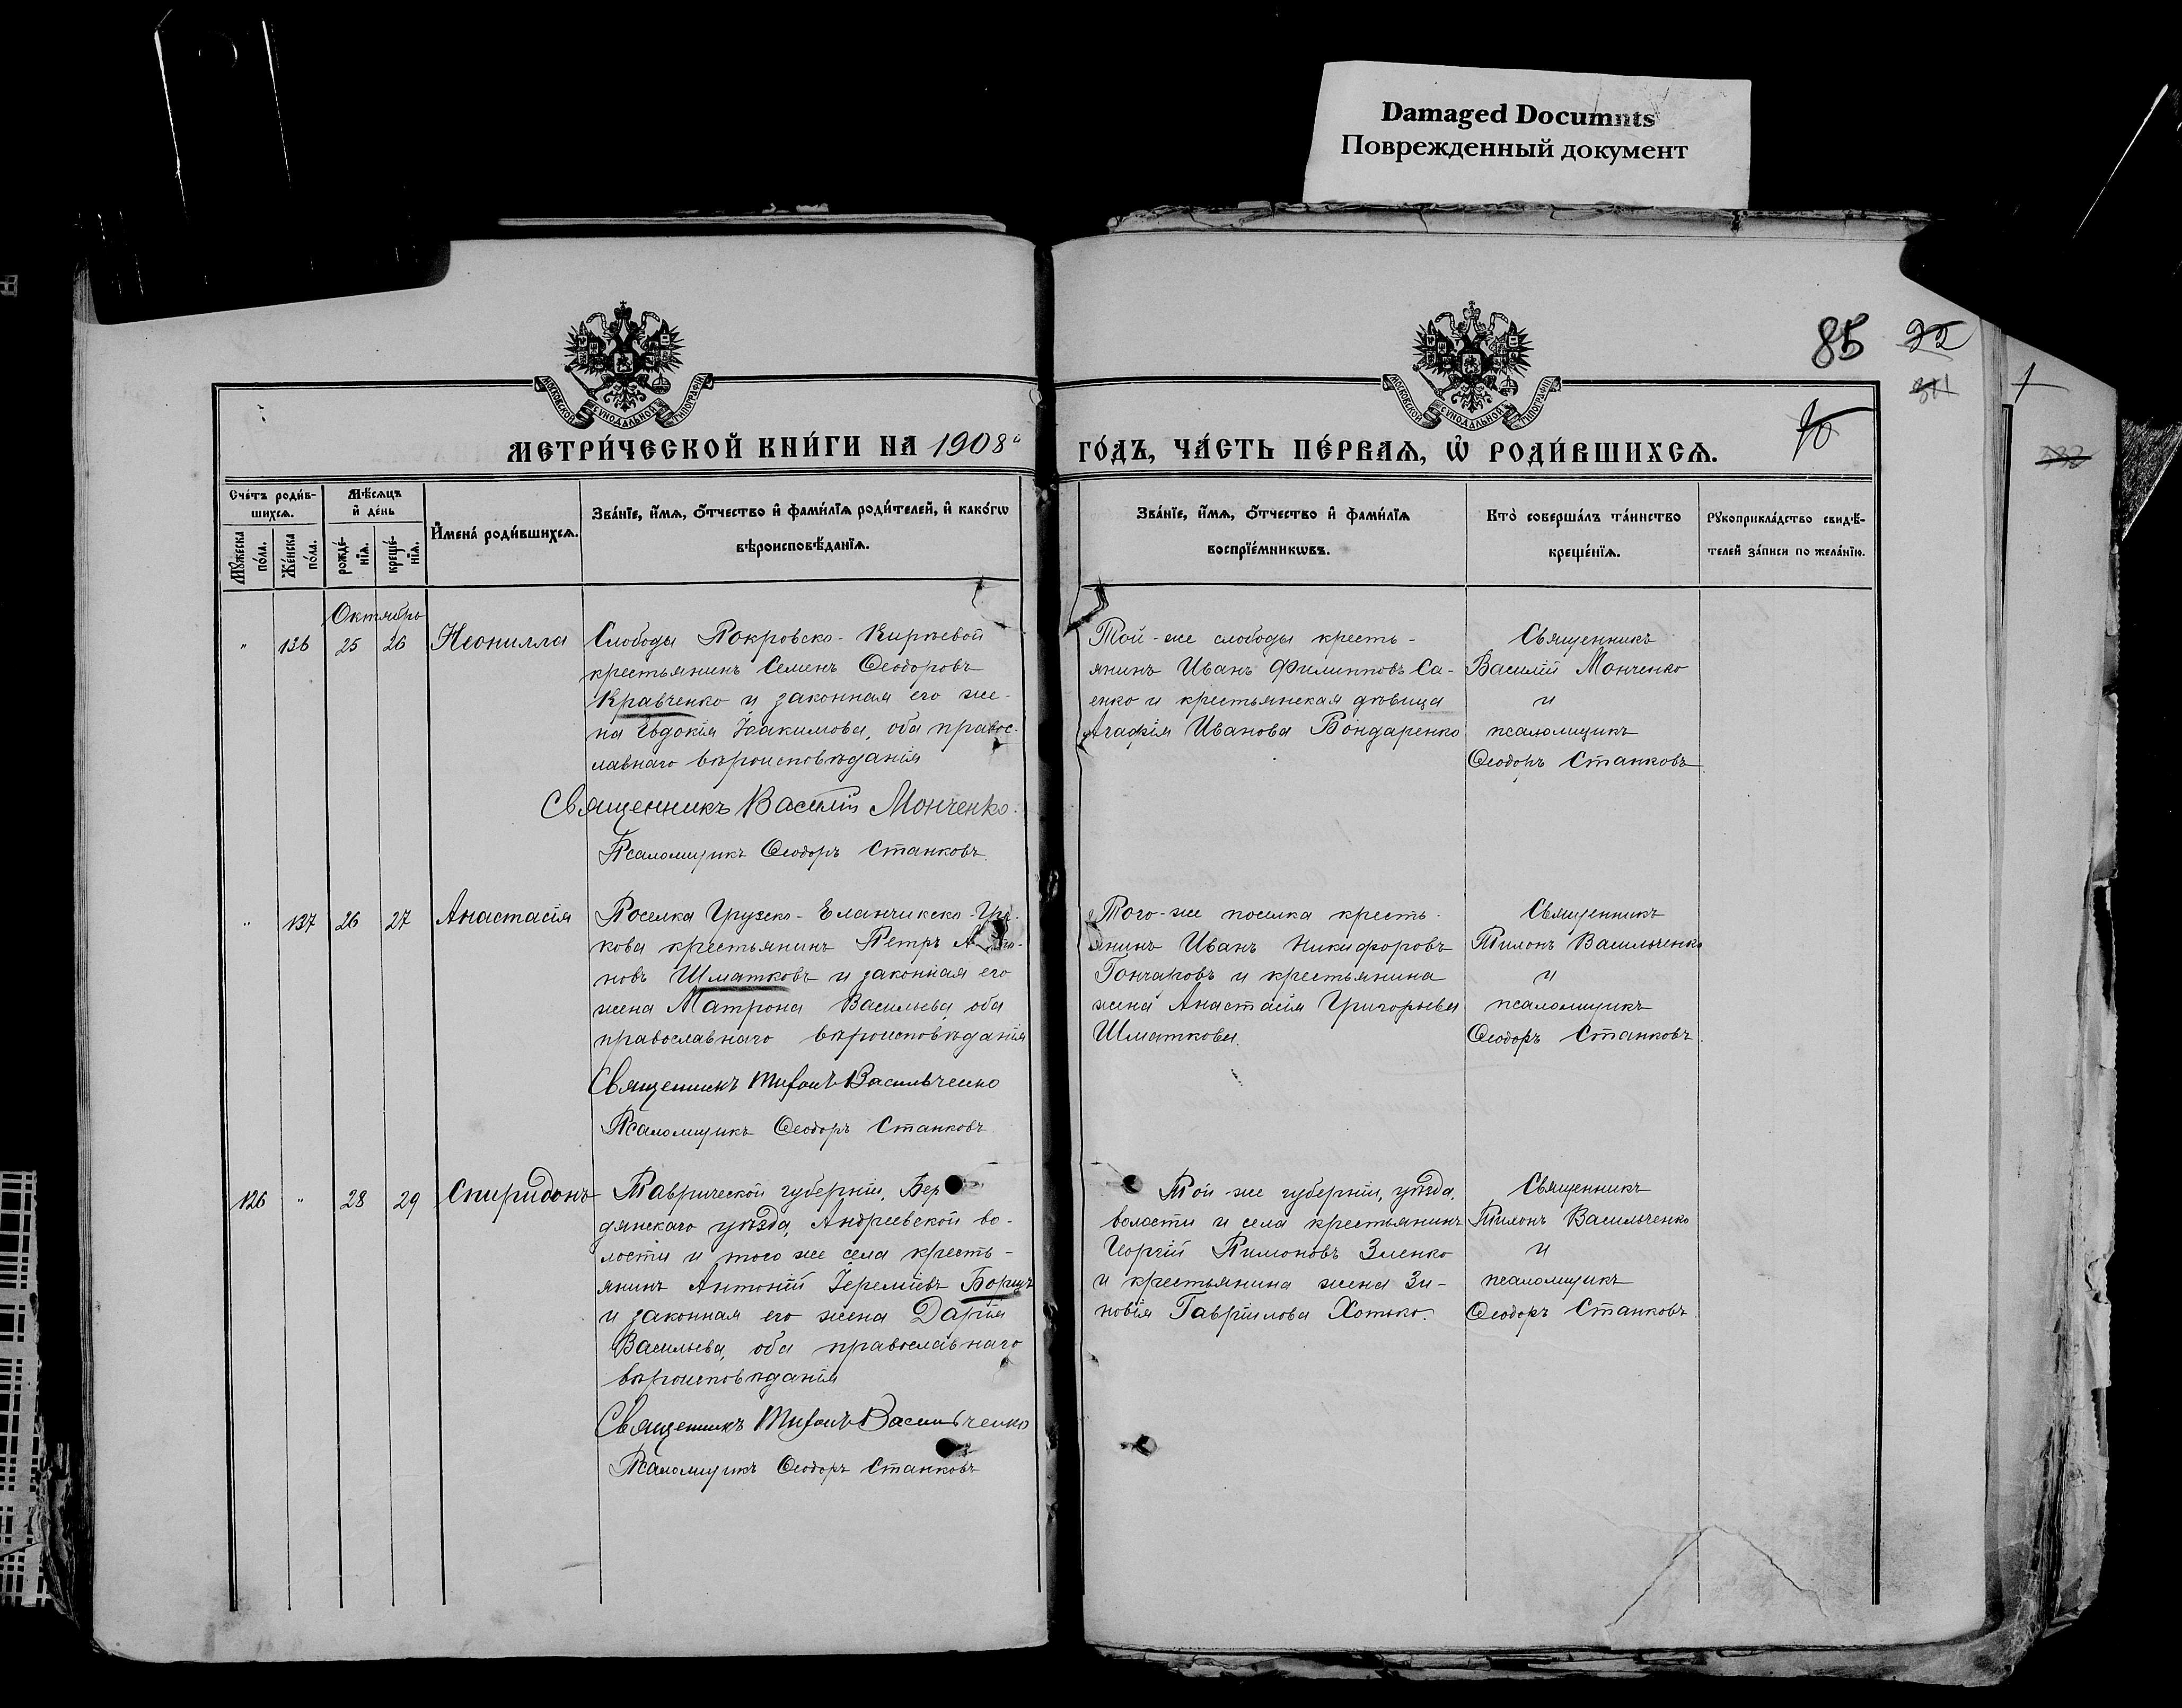 Damaged Documnts
Поврежденный документ
85
МОСКОВСКОЙ СѴНОДАЛЬНОЙ ТИПОГРАФІИ
МОСКОВСКОЙ СѴНОДАЛЬНОЙ ТИПОГРАФІИ
МЕТРИ́ЧЕСКОЙ КНИ́ГИ НА 1908й
ГО́ДЪ, ЧА́СТЬ ПЕ́РВАѦ, Ѡ҆ РОДИ́ВШИХСѦ.
Сче́тъ роди́в-
шихсѧ.
Мꙋ́жеска
по́ла.
Же́нска
по́ла.
Мѣ́сѧцъ
и҆ де́нь
рожде́-
нїѧ.
креще́-
нїѧ.
И҆мена̀ роди́вшихсѧ.
Зва́нїе, и҆́мѧ, ѻ҆́тчество и҆ фами́лїѧ роди́телей, и҆ како́гѡ
вѣроисповѣ́данїѧ.
Зва́нїе, и҆́мѧ, ѻ҆́тчество и҆ фами́лїѧ
воспрїе́мникѡвъ.
Кто̀ соверша́лъ та́инство
креще́нїѧ.
Рꙋкоприкла́дство свидѣ́-
телей за́писи по жела́нїю.
Октябрь
" 136 25 26 Неонилла
Слободы Покровско-Кирѣевой
крестьянинъ Семенъ Ѳеодоровъ
Кравченко и законная его же-
на Евдокія Іоакимова, оба правос-
лавнаго вѣроисповѣданія
Священникъ Василій Монченко.
Псаломщикъ Ѳеодоръ Станковъ.
Той-же слободы кресть-
янинъ Иванъ Филипповъ Са-
енко и крестьянская дѣвица
Агафія Иванова Бондаренко
Священникъ
Василій Монченко
и
псаломщикъ
Ѳеодоръ Станковъ.
" 137 26 27 Анастасія
Поселка Грузско-Еланчикско-
кова крестьянинъ Петръ
новъ Шматковъ и законная его
жена Матрона Васильева оба
православнаго вѣроисповѣданія
Священникъ Тихонъ Васильченко
Псаломщикъ Ѳеодоръ Станковъ.
Того-же поселка кресть-
янинъ Иванъ Никифоровъ
Гончаровъ и крестьянина
жена Анастасія Григорьева
Шматкова.
Священникъ
Тихонъ Васильченко
и
псаломщикъ
Ѳеодоръ Станковъ.
126 " 28 29 Спиридонъ
Таврической губерніи, Бер
дянскаго уѣзда, Андреевской во-
лости и того же села кресть-
янинъ Антоній Іереміевъ Борщъ
и законная его жена Дарія
Васильева, оба православнаго
вѣроисповѣданія
Священникъ Тихонъ Васильченко
Псаломщикъ Ѳеодоръ Станковъ
Той же губерніи, уѣзда,
волости и села крестьянинъ
Георгій Пимоновъ Зленко
и крестьянина жена Зи-
новія Гавріилова Хотько.
Священникъ
Тихонъ Васильченко
и
псаломщикъ
Ѳеодоръ Станковъ.